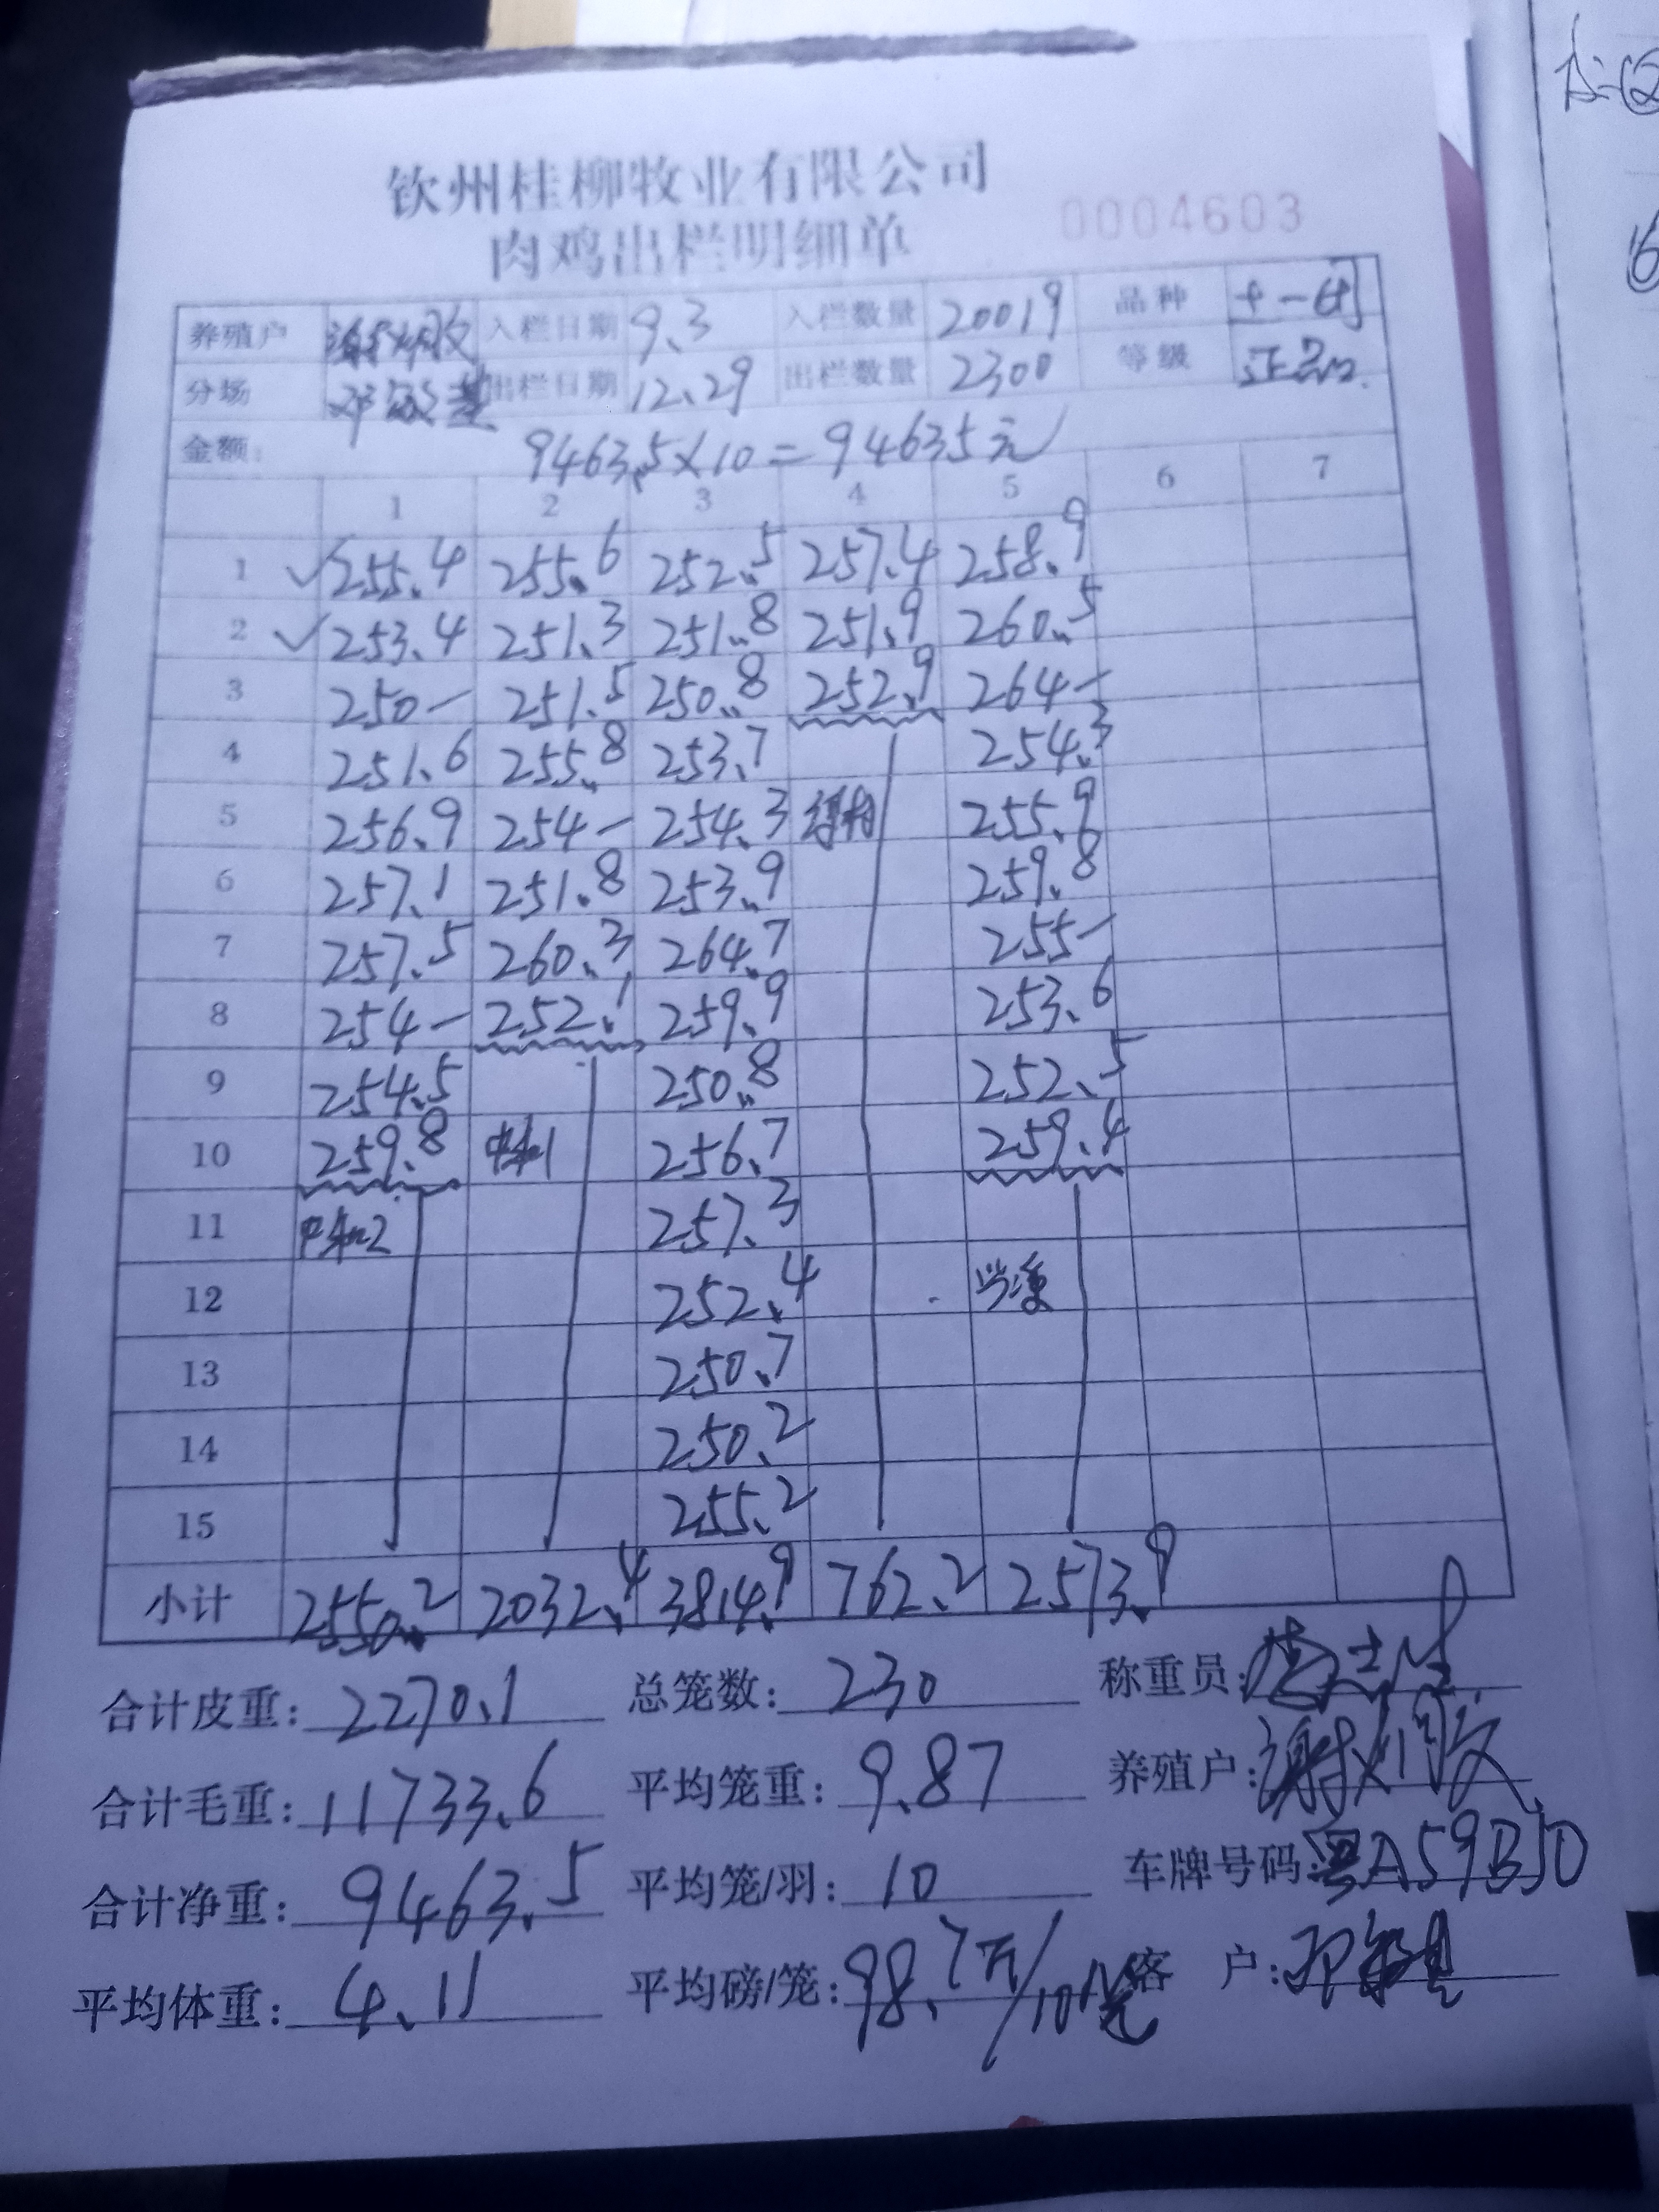 钦州桂柳牧业有限公司
肉鸡出栏明细单 0004603
养殖户 入栏日期 9.3 入栏数量 20019 品种 土一
分场 出栏日期 12.29 出栏数量 2300 等级 正品
金额: 9463.5×10=94635元
1 2 3 4 5 6 7
1 ✓255.4 255.6 252.5 257.4 258.9
2 ✓253.4 251.3 251.8 251.9 260.5
3 250- 251.5 250.8 252.9 264-
4 251.6 255.8 253.7 254.3
5 256.9 254- 254.3 255.9
6 257.1 251.8 253.9 259.8
7 257.5 260.3 264.7 255-
8 254- 252.1 259.9 253.6
9 254.5 250.8 252.5
10 259.8 256.7 259.4
11 257.3
12 252.4
13 250.7
14 250.2
15 255.2
小计 2550.2 2032.4 3814.9 762.2 2573.9
合计皮重: 2270.1 总笼数: 230 称重员:
合计毛重: 11733.6 平均笼重: 9.87 养殖户:
合计净重: 9463.5 平均笼/羽: 10 车牌号码: 粤A59B50
平均体重: 4.11 平均磅/笼: 98.7斤/10笼 客户: